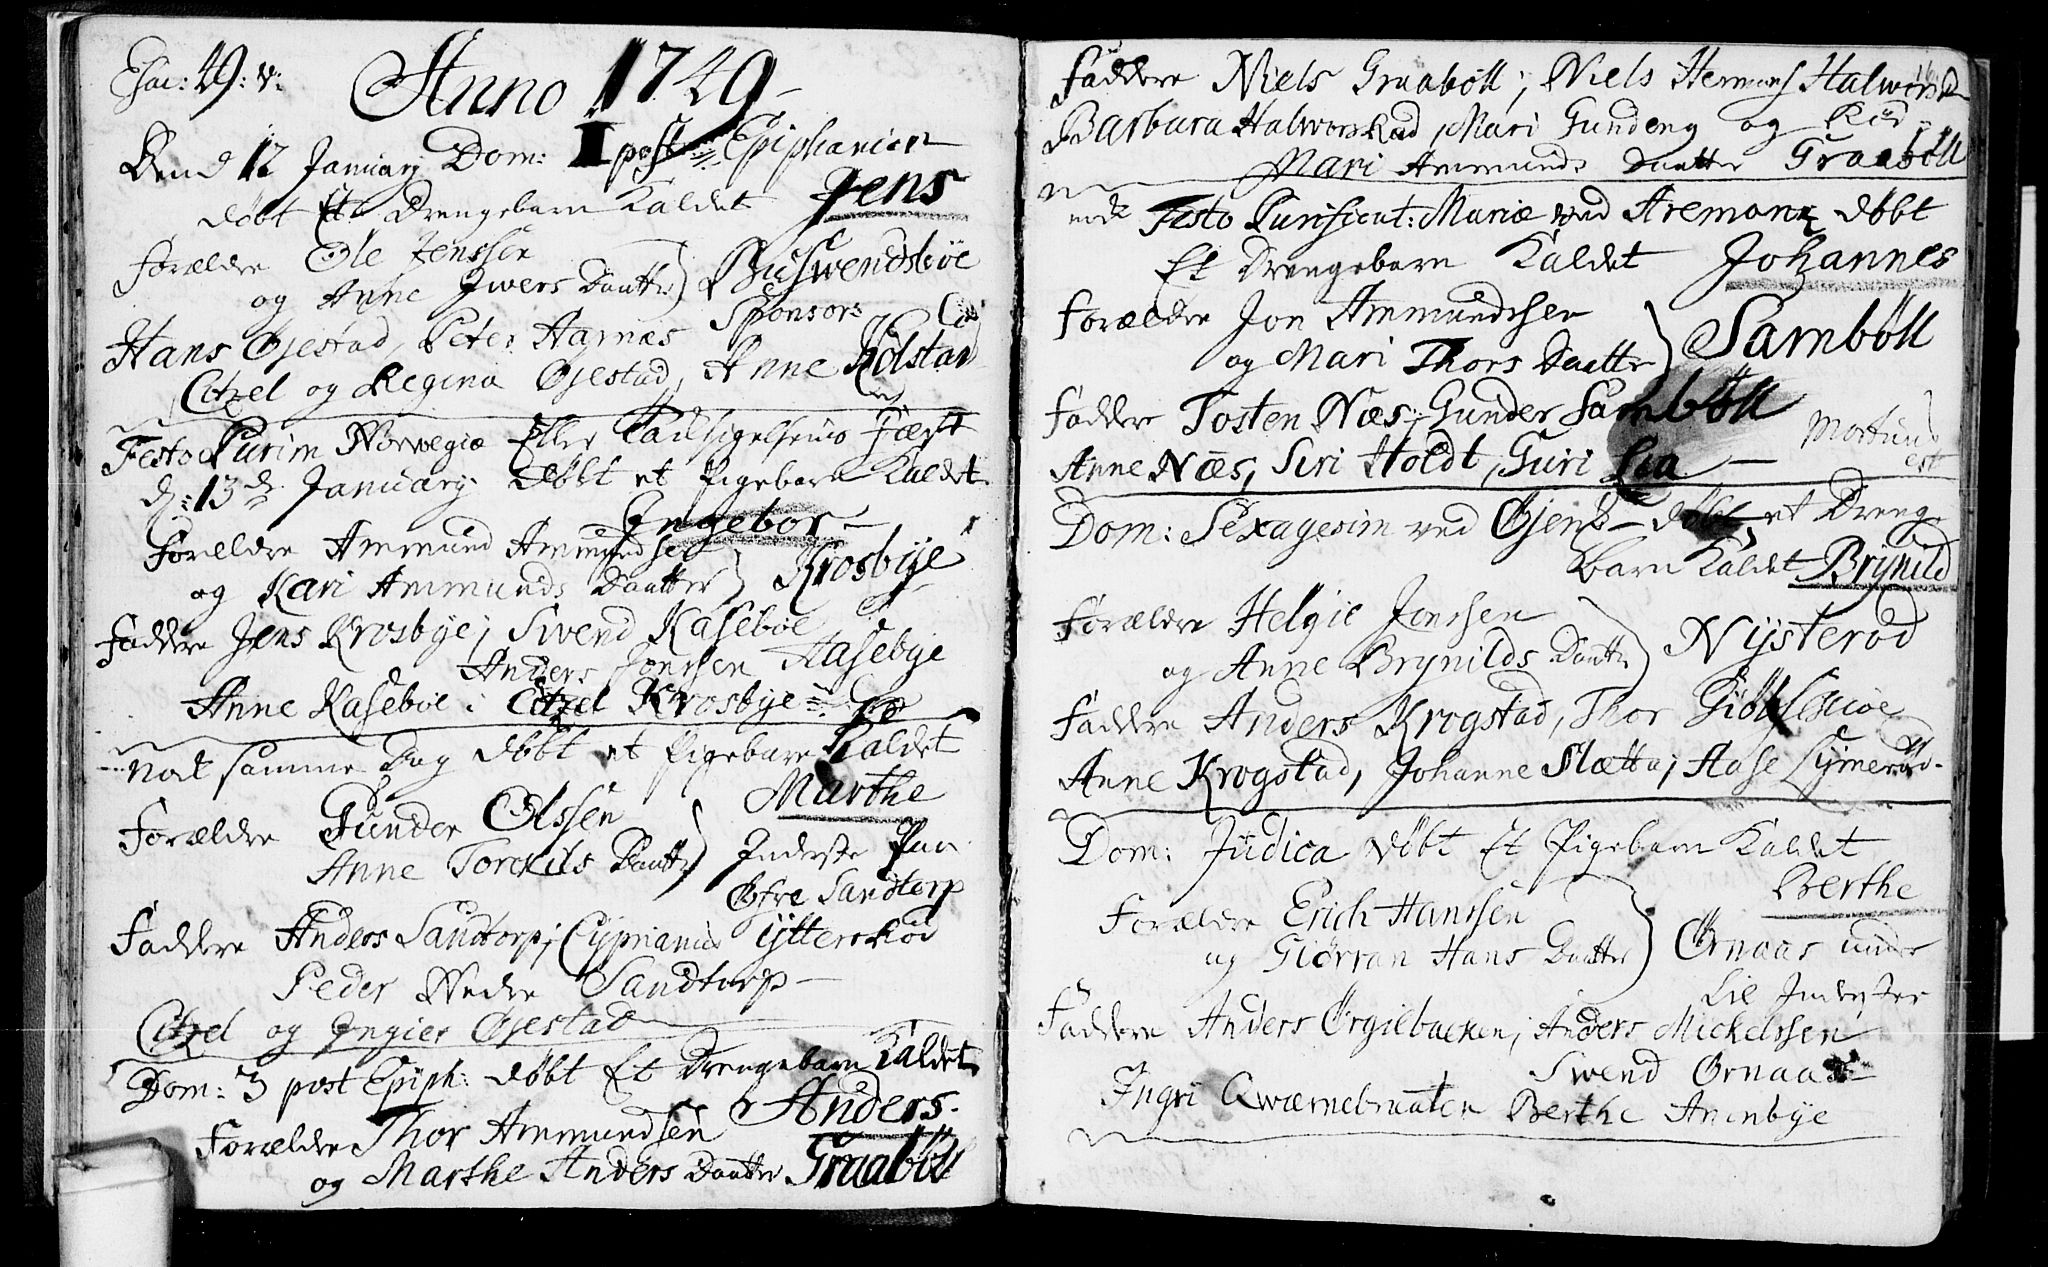 Esai: 49: v:
Anno 1749
Dend 12 January Dom: I post Epiphanian
døbt Et Drengebarn Kaldet Jens
Forældre Ole Jenssen
og Anne Iwers Daatter) Buswendsbøe
Sponsors
Hans Øjestad, Peter Aarnæs
Citzel og Regina Øjestad, Anne Kolstad
Festo Purim Norwegiæ Eller Tacksigelsens Fæst
d: 13de January Døbt et Pigebarn Kaldet
Ingebor
Forældre Ammund Ammundsen
og Kari Ammunds Daatter) Krosbye
Faddere Jens Krosbye; Swend Kasebøe
Anders Jonssen Aasebye
Anne Kasebøe; Citzel Krosbye
Nok samme Dag døbt et Pigebarn Kaldet
Marthe
Forældre Gunder Olssen
Anne Torckils Daatter) Inderste paa
Øfre Sandtorp
Faddere Anders Sandtorp; Cyprianus Ytterskod
Peder Nedre Sandtorp
Citzel og Ingier Øjestad
Dom: 3 post Epiph: døbt Et Drengebarn Kaldet
Anders
Forældre Thor Ammundsen
og Marthe Anders Daatter Graabøll
Faddere Niels Graabøll; Niels Hermans Halworskod
Barbara Halworskod, Mari Gundeng og
Mari Ammunds Daatter Graabøll
Festo Purificat: Mariæ ved Aremark døbt
Et Drengebarn Kaldet Johannes
Forældre Jon Ammundssen
og Mari Thors Daatter) Sambøll
Faddere Tosten Næs; Gunder Sambøll
Anne Næs, Siri Holdt, Guri Lia
Mortuus
est
Dom: Sexagesim ved Øjen døbt et Drenge
Barn Kaldet Brynild
Forældre Helgie Jonssen
og Anne Brynilds Daatter) Nysterød
Faddere Anders Krogstad, Thor
Anne Krogstad, Johanne Slætta; Aase Lymerød
Dom: Judica døbt Et Pigebarn Kaldet
Berthe
Forældre Erich Hanssen
og Giørran Hans Daatter) Ørnaas under
Lie Inderster
Faddere Anders Ørgiebacken; Anders Mickelssen
Swend Ørnaas
Ingri Qwærnebraaten Berthe Anenbye